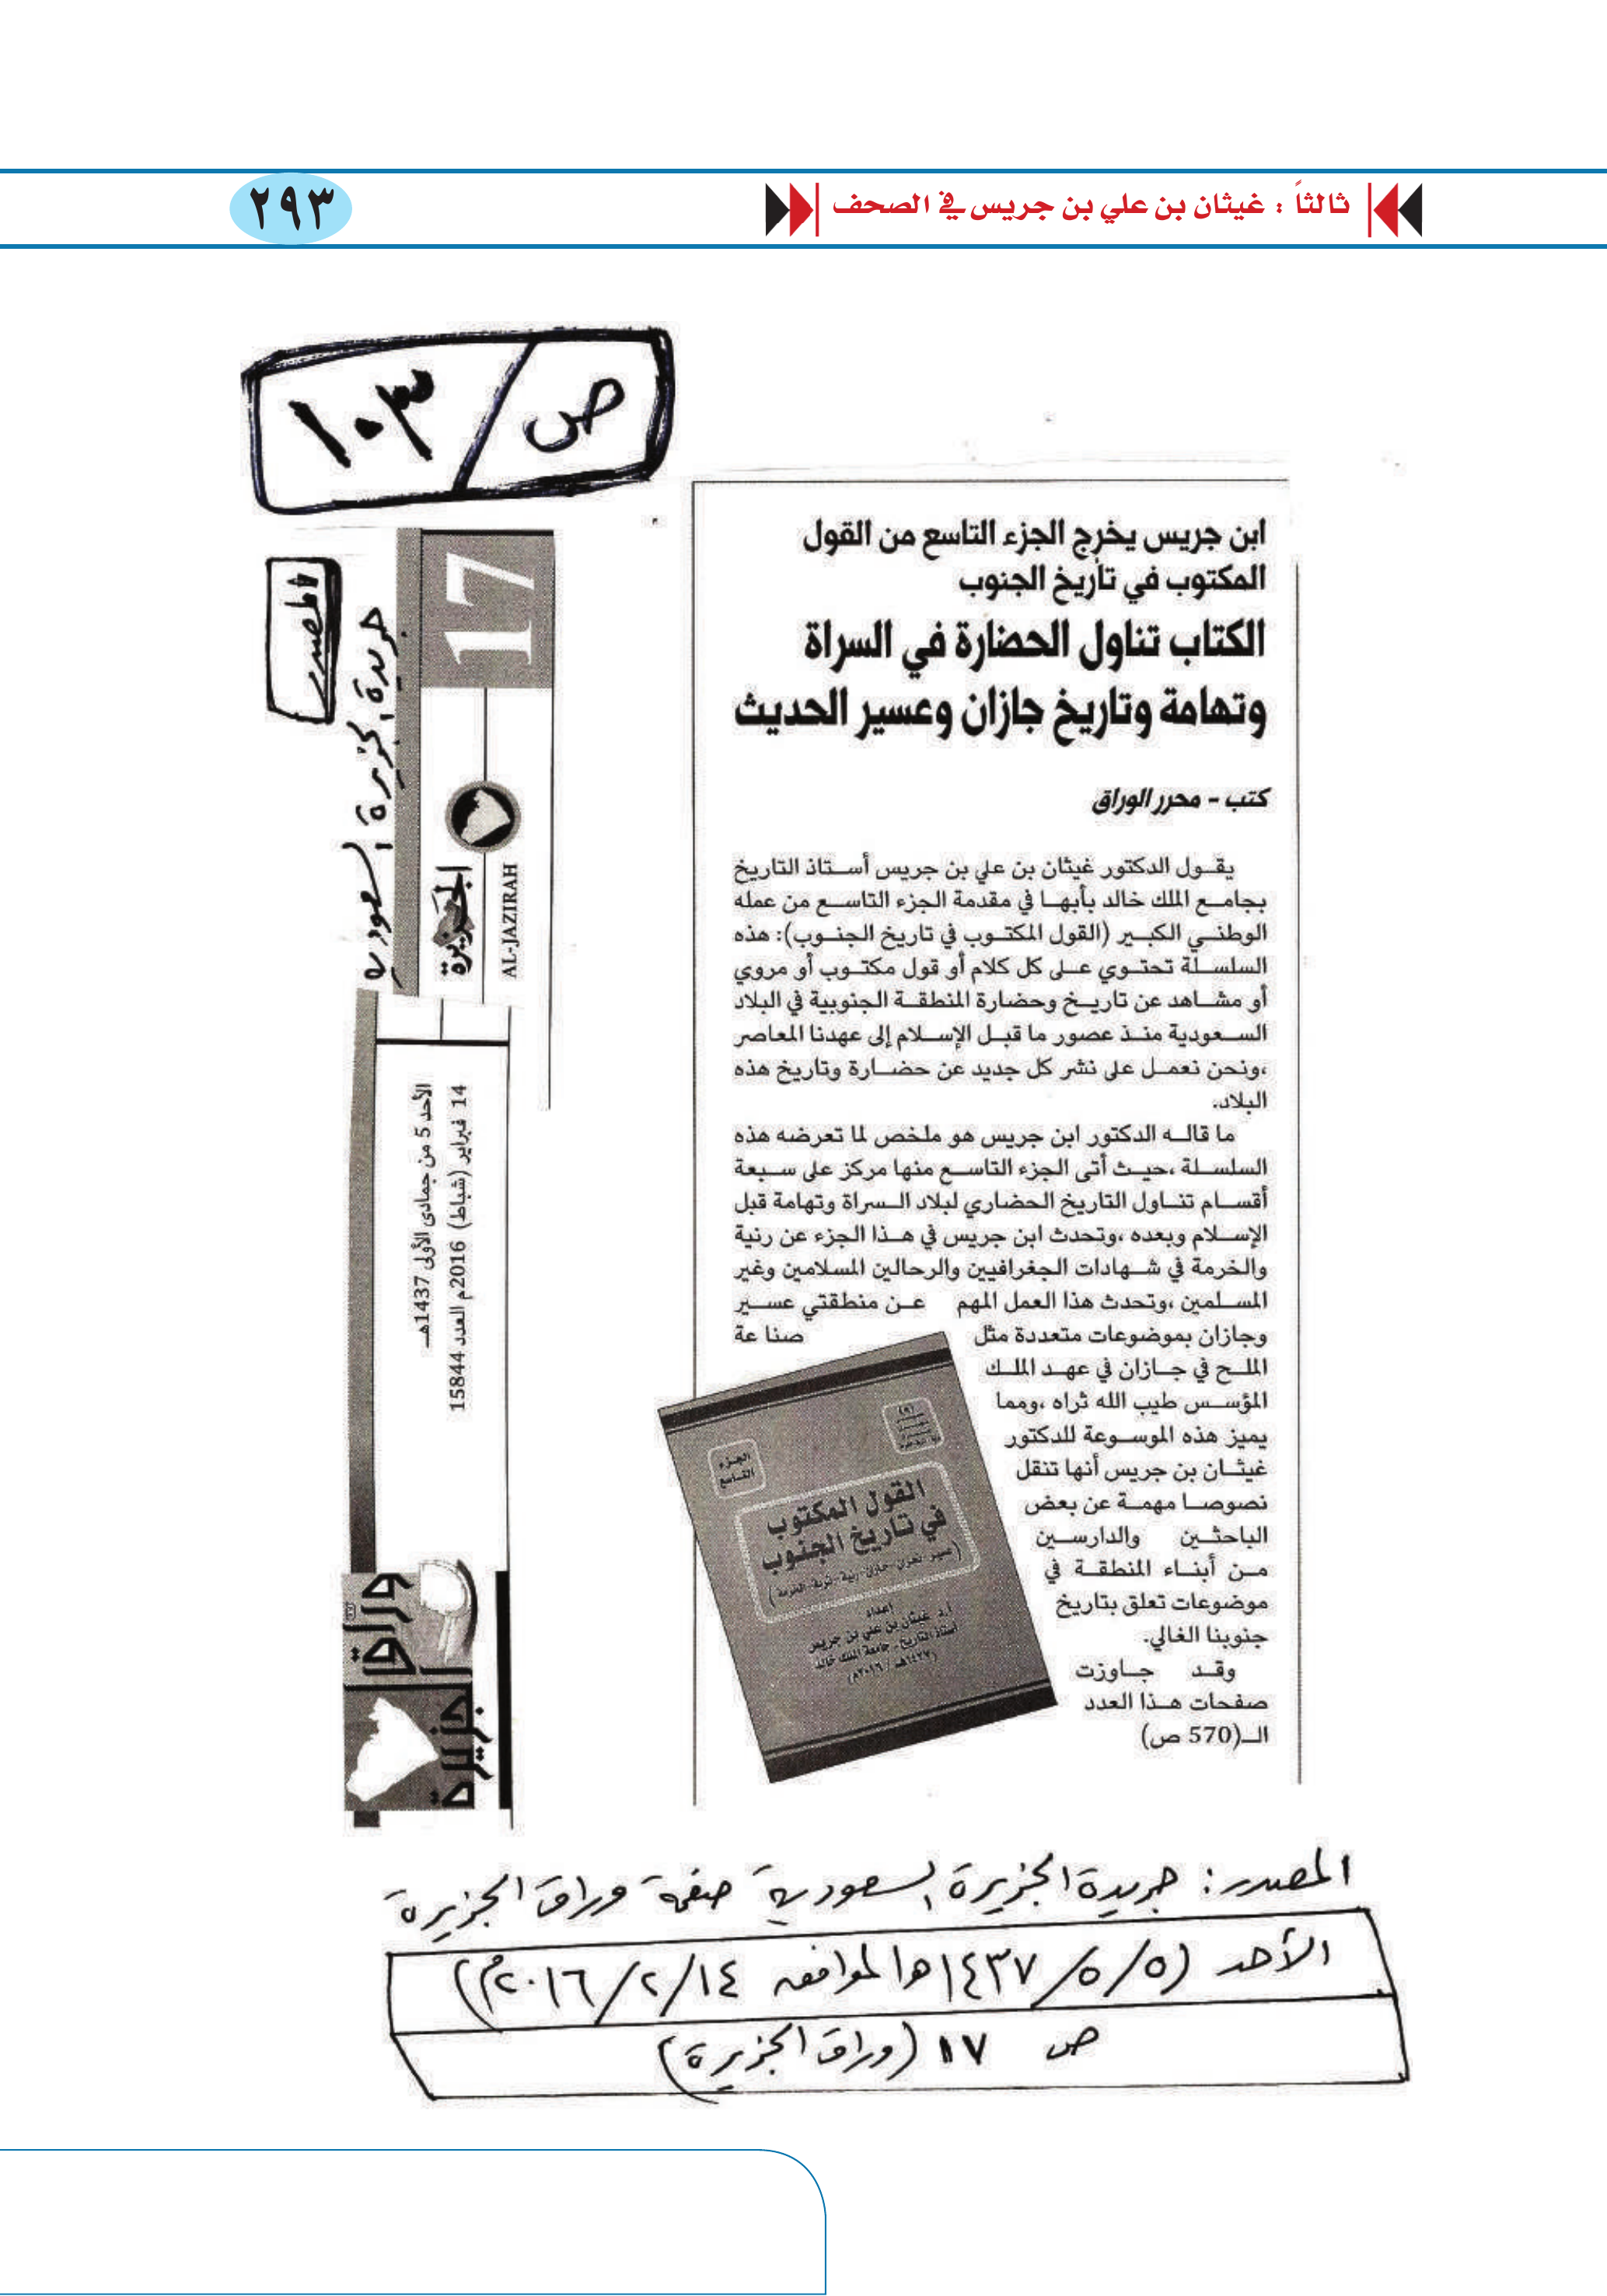 ثالثاً : غيثان بن علي بن جريس في الصحف
٢٩٣
ص / ١٠٣
المصدر
جريدة الجزيرة السعودية
17
الجزيرة
AL-JAZIRAH
الأحد 5 من جمادى الأولى 1437هـ
14 فبراير (شباط) 2016م العدد 15844
وراق
الجزيرة
ابن جريس يخرج الجزء التاسع من القول
المكتوب في تأريخ الجنوب
الكتاب تناول الحضارة في السراة
وتهامة وتاريخ جازان وعسير الحديث
كتب - محرر الوراق
يقـول الدكتور غيثان بن علي بن جريس أسـتاذ التاريخ
بجامـع الملك خالد بأبهـا في مقدمة الجزء التاسـع من عمله
الوطنـي الكبـير (القول المكتـوب في تاريخ الجنـوب): هذه
السلسـلة تحتـوي عـلى كل كلام أو قول مكتـوب أو مروي
أو مشـاهد عن تاريـخ وحضارة المنطقـة الجنوبية في البلاد
السـعودية منـذ عصور ما قبـل الإسـلام إلى عهدنا المعاصر
،ونحن نعمـل على نشر كل جديد عن حضـارة وتاريخ هذه
البلاد.
ما قالـه الدكتور ابن جريس هو ملخص لما تعرضه هذه
السلسـلة ،حيـث أتى الجزء التاسـع منها مركز على سـبعة
أقسـام تنـاول التاريخ الحضاري لبلاد الـسراة وتهامة قبل
الإسـلام وبعده ،وتحدث ابن جريس في هـذا الجزء عن رنية
والخرمة في شـهادات الجغرافيين والرحالين المسلامين وغير
المسـلمين ،وتحدث هذا العمل المهم عـن منطقتي عسـير
وجازان بموضوعات متعددة مثل صنا عة
الملـح في جـازان في عهـد الملـك
المؤسـس طيب الله ثراه ،ومما
يميز هذه الموسـوعة للدكتور
غيثـان بن جريس أنها تنقل
نصوصـا مهمـة عن بعض
الباحثـين والدارسـين
مـن أبنـاء المنطقـة في
موضوعات تعلق بتاريخ
جنوبنا الغالي.
وقـد جـاوزت
صفحات هـذا العدد
الـ(570 ص)
الجزء
التاسع
القول المكتوب
في تاريخ الجنوب
(عسير-نجران-جازان-رنية-تربة-الخرمة)
إعداد
أ.د غيثان بن علي بن جريس
أستاذ التاريخ . جامعة الملك خالد
(١٤٣٧هـ / ٢٠١٦م)
المصدر: جريدة الجزيرة السعودية صفحة وراق الجزيرة
الأحد (٥/٥/١٤٣٧هـ الموافق ١٤/٢/٢٠١٦م)
ص ١٧ (وراق الجزيرة)